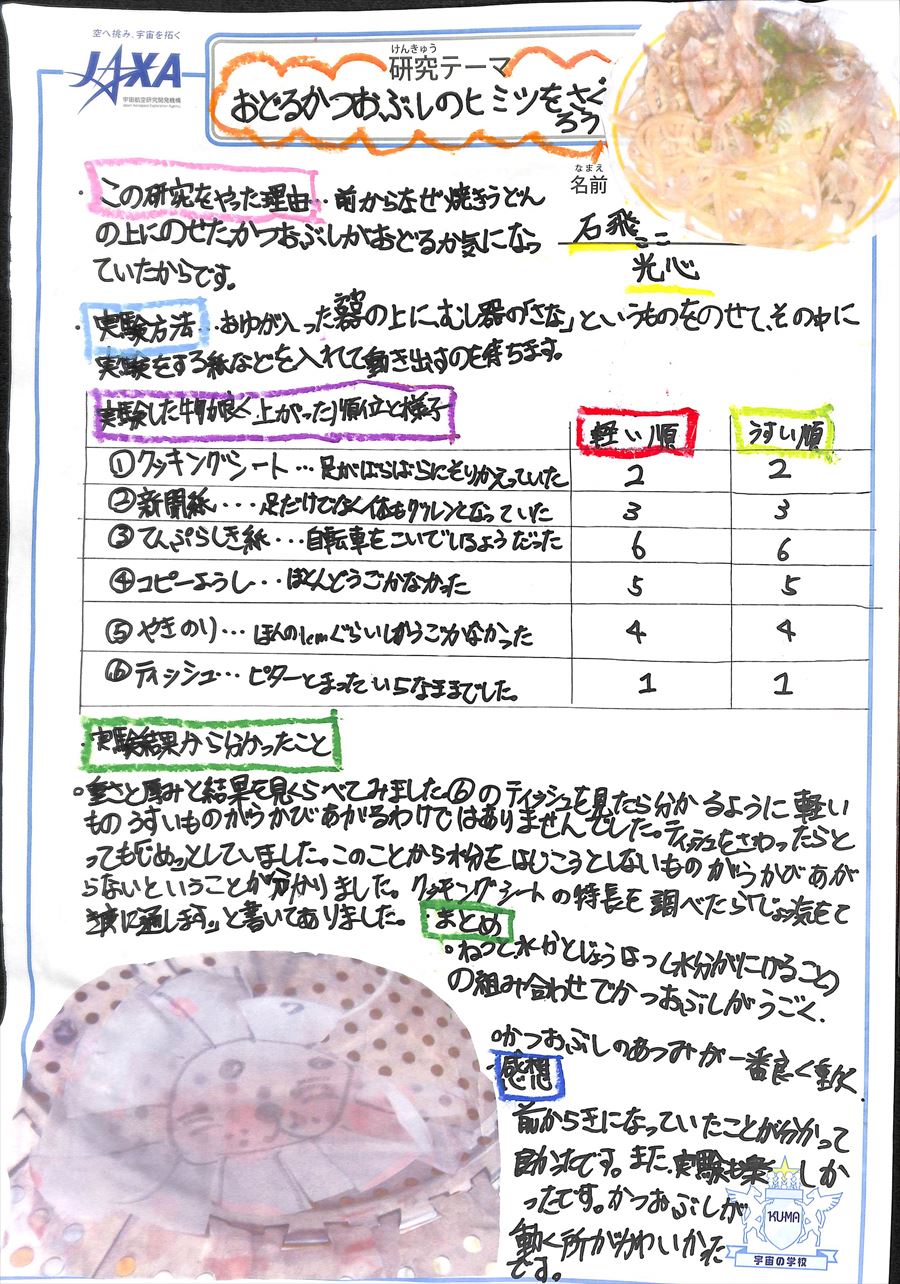 空へ挑み、宇宙を拓く
JAXA
宇宙航空研究開発機構
Japan Aerospace Exploration Agency
けんきゅう
研究テーマ
おどるかつおぶしのヒミツをさぐ
ろう
なまえ
名前
石飛
ここ
光心
・この研究をやった理由…前からなぜ焼きうどん
の上にのせたかつおぶしがおどるか気になっ
ていたからです。
・実験方法…おゆが入った容器の上に、むし器の「さな」というものをのせて、その中に
実験をする紙などを入れて動き出すのを待ちます。
実験した物が良く上がった順位と様子
軽い順
うすい順
①クッキングシート…足がばらばらにそりかえっていた
2
2
②新聞紙....足だけでなく体もクルンとなっていた
3
3
③てんぷらしき紙...自転車をこいでいるようだった
6
6
④コピーようし...ほとんどうごかなかった
5
5
⑤やきのり...ほんの1cmぐらいしかうごかなかった
4
4
⑥ティッシュ...ピターととまっていらなままでした。
1
1
・実験結果から分かったこと
○重さと厚みと結果を見くらべてみました⑥のティッシュを見たら分かるように軽い
ものうすいものがうかびあがるわけではありませんでした。ティッシュをさわったらと
ってもじめっとしていました。このことから水分をはじこうとしないものがうかびあが
らないということが分かりました。クッキングシートの特長を調べたら「じょう気をて
き度に通します。」と書いてありました。
・まとめ
○ねつと水分とじょうはつ(水分がにげること)
の組み合わせでかつおぶしがうごく.
○かつおぶしのあつみが一番良く動く.
・感想
前からきになっていたことが分かって
良かったです。また、実験も楽しか
ったです。かつおぶしが
動く所がかわいかった
です。
KUMA
宇宙の学校